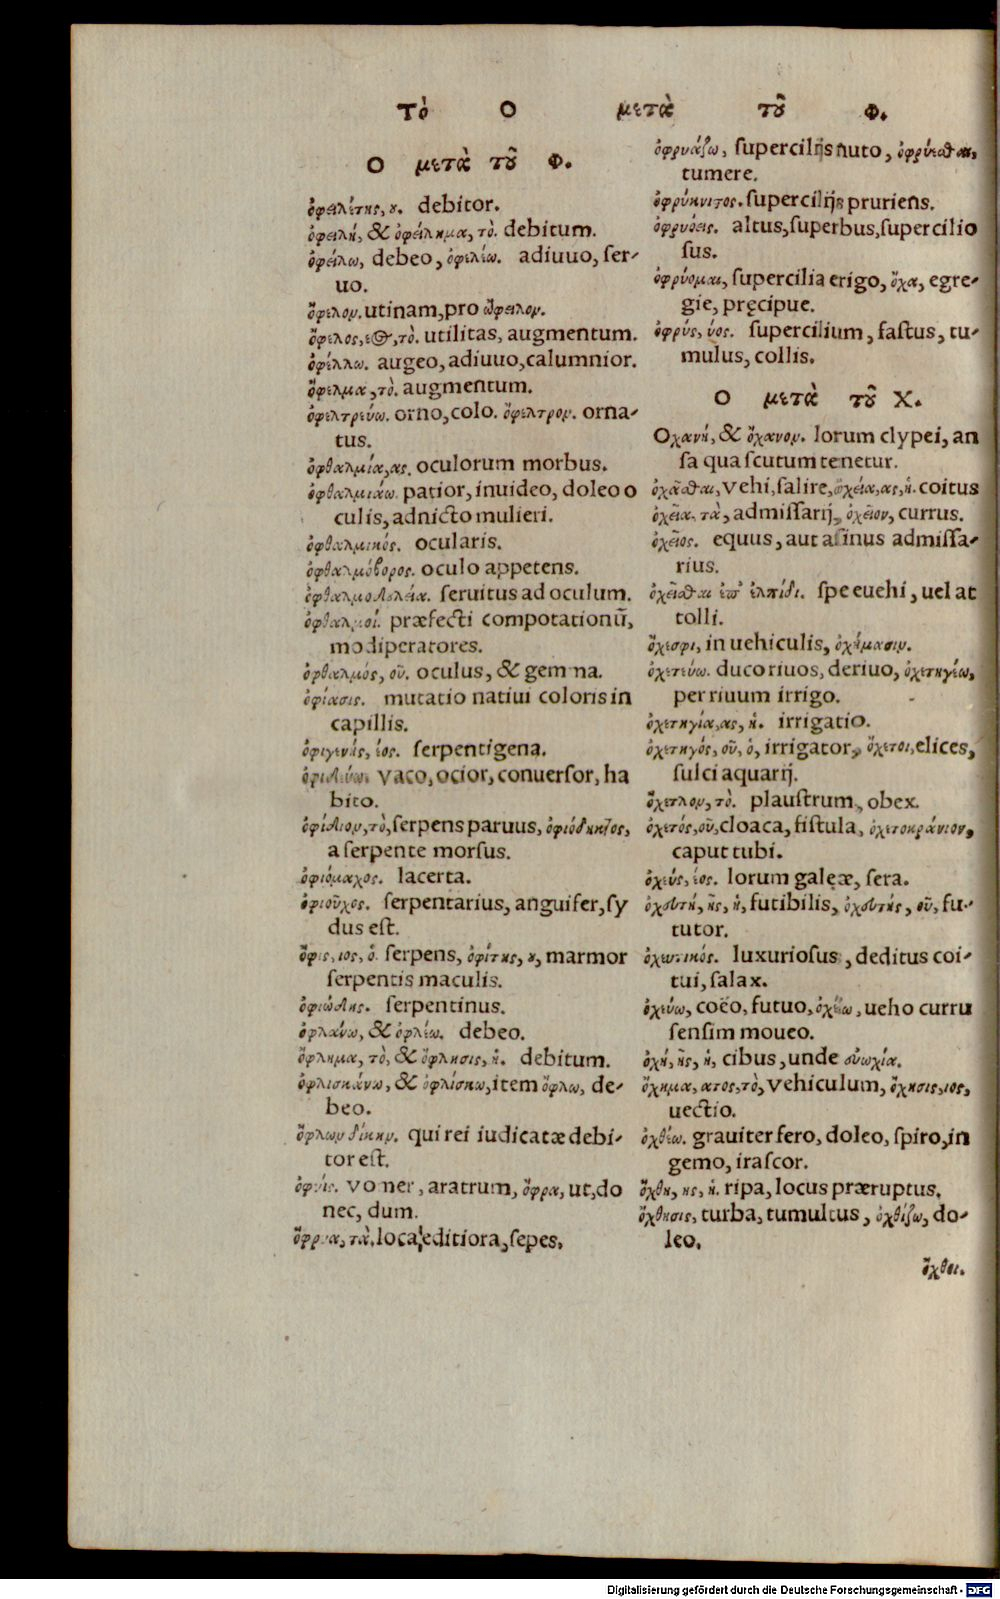 Τὸ Ο μετὰ τοῦ Φ.
Ο μετὰ τοῦ Φ.
ὀφειλέτης, ου. debitor.
ὀφειλή, & ὀφείλημα, τὸ. debitum.
ὀφείλω, debeo, ὀφελέω. adiuuo, ser-
uo.
ὄφελον. utinam, pro ὤφειλον.
ὄφελος, εος, τὸ. utilitas, augmentum.
ὀφέλλω. augeo, adiuuo, calumnior.
ὄφελμα, τὸ. augmentum.
ὀφελτρεύω. orno, colo. ὄφελτρον. orna-
tus.
ὀφθαλμία, ας. oculorum morbus.
ὀφθαλμιάω. patior, inuideo, doleo o
culis, adnicto mulieri.
ὀφθαλμικός. ocularis.
ὀφθαλμόβορος. oculo appetens.
ὀφθαλμοδελεία. seruitus ad oculum.
ὀφθαλμοί. præfecti compotationũ,
modiperatores.
ὀφθαλμός, οῦ. oculus, & gemma.
ὀφίασις. mutatio natiui coloris in
capillis.
ὀφιγενής, έος. serpentigena.
vaco, ocior, conuersor, ha
bito.
ὀφίδιον, τὸ, serpens paruus, ὀφιόδηκτος,
a serpente morsus.
ὀφιόμαχος. lacerta.
ὀφιοῦχος. serpentarius, anguifer, sy
dus est.
ὄφις, ιος, ὁ. serpens, ὀφίτης, ου, marmor
serpentis maculis.
ὀφιώδης. serpentinus.
ὀφλάνω, & ὀφλέω. debeo.
ὄφλημα, τὸ, & ὄφλησις, ἡ. debitum.
ὀφλισκάνω, & ὀφλίσκω, item ὄφλω, de-
beo.
ὄφλων δίκην. qui rei iudicatæ debi-
tor est.
ὀφνίς. vomer, aratrum, ὄφρα, ut, do
nec, dum.
ὄφρυα, τὰ. loca editiora, sepes.
ὀφρυάζω, supercilijs nuto, ὀφρύεσθαι,
tumere.
ὀφρύκνιτος. supercilijs pruriens.
ὀφρυόεις. altus, superbus, supercilio
sus.
ὀφρύομαι, supercilia erigo, ὄχα, egre-
gie, pręcipue.
ὀφρύς, ύος. supercilium, fastus, tu-
mulus, collis.
Ο μετὰ τοῦ Χ.
Οχανή, & ὄχανον. lorum clypei, an
sa qua scutum tenetur.
ὀχᾶσθαι, vehi, salire, ὀχεία, ας, ἡ. coitus
ὀχεῖα. τὰ, admissarij, ὀχεῖον, currus.
ὀχεῖος. equus, aut asinus admissa-
rius.
ὀχεῖσθαι ἐπ' ἐλπίδι. spe euehi, uel at
tolli.
ὄχεσφι, in uehiculis, ὀχήμασιν.
ὀχετεύω. duco riuos, deriuo, ὀχετηγέω,
per riuum irrigo.
ὀχετηγία, ας, ἡ. irrigatio.
ὀχετηγός, οῦ, ὁ, irrigator, ὄχετοι, elices,
sulci aquarij.
ὄχετλον, τὸ. plaustrum, obex.
ὀχετός, οῦ, cloaca, fistula, ὀχετοκράνιον,
caput tubi.
ὀχεύς, έος. lorum galeę, sera.
ὀχευτή, ῆς, ἡ, futibilis, ὀχευτής, οῦ, fu-
tutor.
ὀχευτικός. luxuriosus, deditus coi-
tui, salax.
ὀχεύω, coëo, futuo, ὀχέω, ueho curru
sensim moueo.
ὀχή, ῆς, ἡ, cibus, unde εὐωχία.
ὄχημα, ατος, τὸ, vehiculum, ὄχησις, ιος,
uectio.
ὀχθέω. grauiter fero, doleo, spiro, in
gemo, irascor.
ὄχθη, ης, ἡ. ripa, locus præruptus.
ὄχθησις, turba, tumultus, ὀχθίζω, do-
leo.
ὄχθοι.
Digitalisierung gefördert durch die Deutsche Forschungsgemeinschaft - DFG